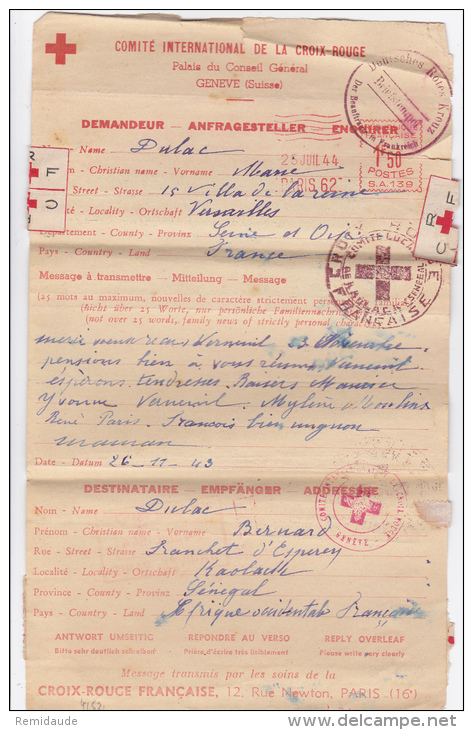 COMITÉ INTERNATIONAL DE LA CROIX-ROUGE
Palais du Conseil Général
GENÈVE (Suisse)
Deutsches Rotes Kreuz
Briefstempel
Der Beauftragte in Frankreich
DEMANDEUR - ANFRAGESTELLER - ENQUIRER
Name Dulac
28 JUIL 44
PARIS 62
1F50
POSTES
S.A.139
Christian name - Vorname
Street - Strasse 15 Villa de la reine
Locality - Ortschaft Versailles
Département - County - Provinz Seine et Oise
Pays - Country - Land France
CROIX
FRANÇAISE
KAOLACK (SENEGAL)
Message à transmettre - Mitteilung - Message
(25 mots au maximum, nouvelles de caractère strictement personnel et familial)
(nicht über 25 Worte, nur persönliche Familiennachrichten)
(not over 25 words, family news of strictly personal character)
Verneuil
pensions bien à vous
espérons tendresses. Baisers
Yvonne Verneuil. Mylène
René Paris. Francois bien mignon
maman
Date - Datum 26-11-43
DESTINATAIRE - EMPFÄNGER - ADDRESSEE
GENÈVE
Nom - Name Dulac
Prénom - Christian name - Vorname Bernard
Rue - Street - Strasse Franchet d'Esperey
Localité - Locality - Ortschaft Kaolack
Province - County - Provinz Sénégal
Pays - Country - Land Afrique occidentale Française
ANTWORT UMSEITIG RÉPONDRE AU VERSO REPLY OVERLEAF
Bitte sehr deutlich schreiben Prière d'écrire très lisiblement Please write very clearly
Message transmis par les soins de la
CROIX-ROUGE FRANÇAISE, 12, Rue Newton, PARIS (16e)
Remidaude
www.delcampe.net